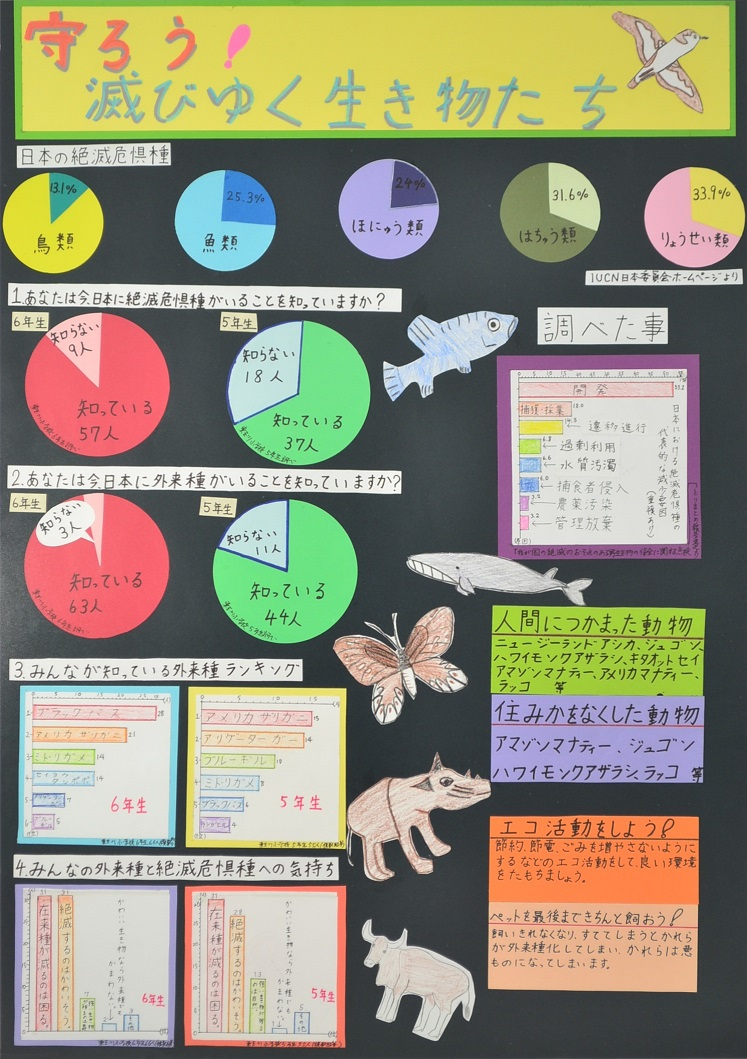 守ろう!
滅びゆく生き物たち
日本の絶滅危惧種
13.1%
鳥類
25.3%
魚類
24%
ほにゅう類
31.6%
はちゅう類
33.9%
りょうせい類
IUCN日本委員会ホームページより
1.あなたは今日本に絶滅危惧種がいることを知っていますか?
6年生
知らない
9人
知っている
57人
5年生
知らない
18人
知っている
37人
2.あなたは今日本に外来種がいることを知っていますか?
6年生
知らない
3人
知っている
63人
5年生
知らない
11人
知っている
44人
3.みんなが知っている外来種ランキング
ブラックバス
アメリカザリガニ
ミドリガメ 14
セイヨウタンポポ 14
7
5
6年生
アメリカザリガニ 15
アリゲーターガー 14
ブルーギル 10
ミドリガメ 8
ブラックバス 6
4
5年生
4.みんなの外来種と絶滅危惧種への気持ち
31
在来種が減るのは困る。
31
絶滅するのはかわいそう。
7
かわいい生き物なら外来種でもかまわない。
2
3
6年生
31
在来種が減るのは困る。
28
絶滅するのはかわいそう。
13
かわいい生き物なら外来種でもかまわない。
1
5
5年生
調べた事
開発
捕獲・採業
違移進行
過剰利用
6.6 水質汚濁
6.0 捕食者侵入
3.2 農薬汚染
3.2 管理放棄
日本における絶滅危惧種の
代表的な減少要因
(重複あり)
人間につかまった動物
ニュージーランドアシカ、ジュゴン、
ハワイモンクアザラシ、キタオットセイ
アマゾンマナティー、アメリカマナティー、
ラッコ 等
住みかをなくした動物
アマゾンマナティー、ジュゴン
ハワイモンクアザラシ、ラッコ 等
エコ活動をしよう!
節約、節電、ごみを増やさないように
するなどのエコ活動をして、良い環境
をたもちましょう。
ペットを最後まできちんと飼おう!
飼いきれなくなり、すててしまうとかれら
が外来種化してしまい、かれらは悪
ものになってしまいます。